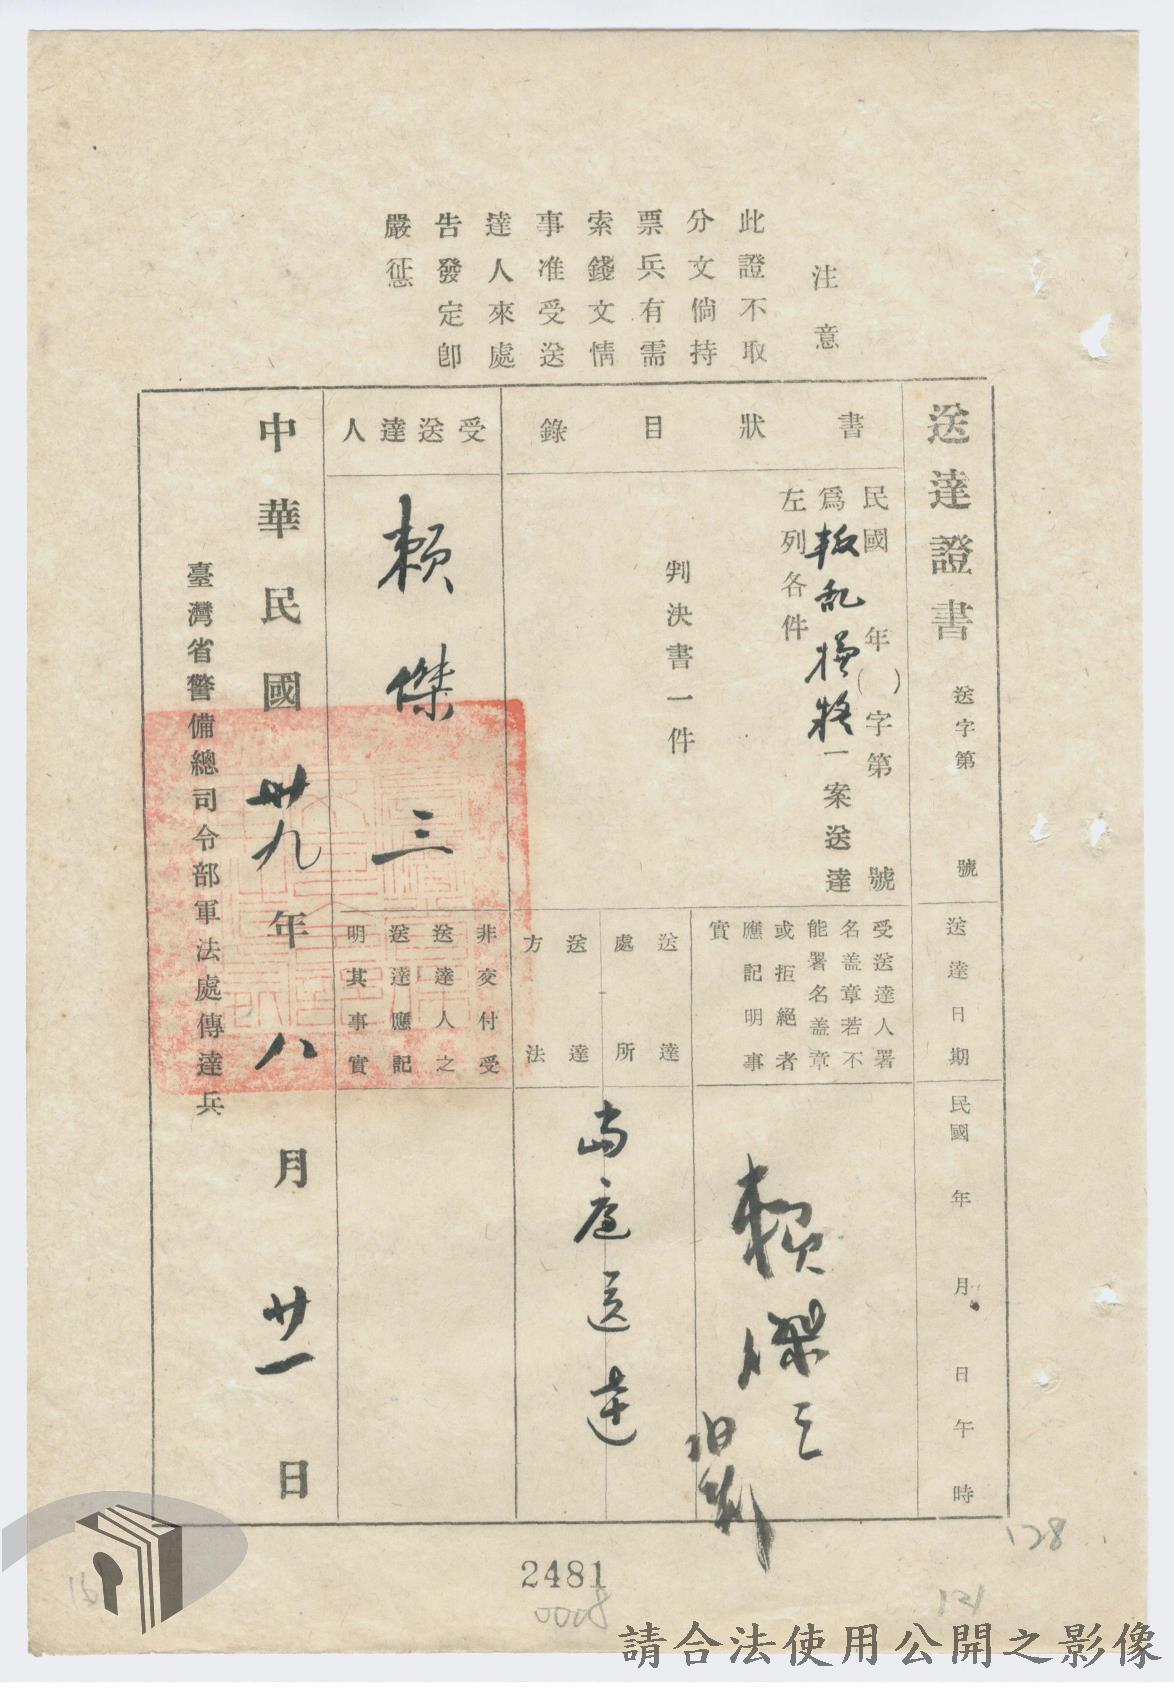 注意
此證不取
分文倘持
票兵有需
索錢文情
事准受送
達人來處
告發定卽
嚴懲
送達證書
送字第 號
送達日期
民國 年 月 日午 時
書狀目錄
民國 年( )字第 號
爲叛乱
一案送達
左列各件
判決書一件
受送達人署
名盖章若不
能署名盖章
或拒絕者
應記明事
實
賴傑三
送達處所
送達方法
當庭送達
受送達人
賴傑三
非交付受
送達人之
送達應記
明其事實
中華民國卅九年八月廿一日
臺灣省警備總司令部軍法處傳達兵
2481
0008
128
121
請合法使用公開之影像